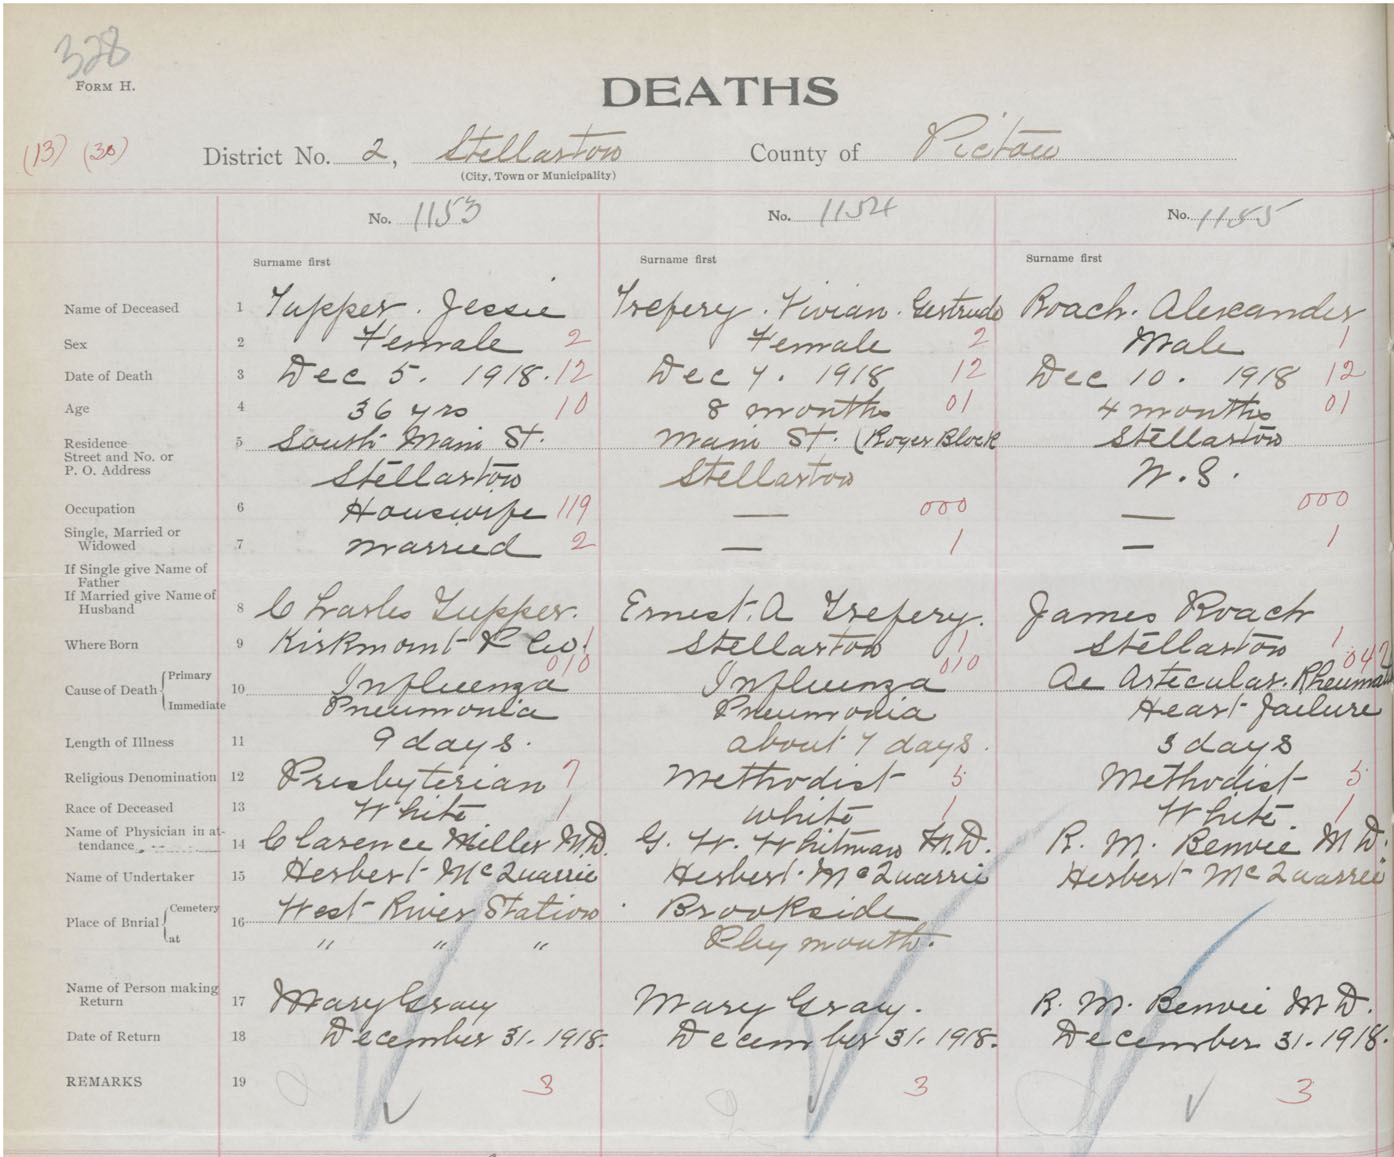 328
FORM H.
DEATHS
(13) (30)
District No. 2, Stellarton County of Pictou
(City, Town or Municipality)
No. 1153 No. 1154 No. 1155
Surname first Surname first Surname first
Name of Deceased 1 Tupper. Jessie Trefery. Vivian. Gertrude Roach. Alexander
Sex 2 Female 2 Female 2 Male 1
Date of Death 3 Dec 5. 1918. 12 Dec 7. 1918 12 Dec 10. 1918 12
Age 4 36 yrs 10 8 months 01 4 months 01
Residence 5 South Main St. Main St. (Roger Block Stellarton
Street and No. or
P. O. Address Stellarton Stellarton N.S.
Occupation 6 Housewife 119 — 000 — 000
Single, Married or
Widowed 7 Married 2 — 1 — 1
If Single give Name of
Father
If Married give Name of
Husband 8 Charles Tupper. Ernest. A Trefery. James Roach
Where Born 9 Kirkmont P Co. 1 Stellarton 1 Stellarton 1
010 010 047
Cause of Death Primary 10 Influenza Influenza Ac Artecular. Rheumatis
Immediate Pneumonia Pneumonia Heart failure
Length of Illness 11 9 days. about 7 days. 3 days
Religious Denomination 12 Presbyterian 7 Methodist 5 Methodist 5
Race of Deceased 13 White 1 White 1 White 1
Name of Physician in at-
tendance 14 Clarence Miller M.D. G. W. Whitman M.D. R. M. Benvie M D.
Name of Undertaker 15 Herbert McQuarrie Herbert. McQuarrie Herbert McQuarrie
Place of Bnrial Cemetery 16 West River Station Brookside
at " " " Plymouth.
Name of Person making
Return 17 Mary Gray Mary Gray. R. M. Benvie M D.
Date of Return 18 December 31. 1918. December 31. 1918. December 31. 1918.
REMARKS 19 3 3 3